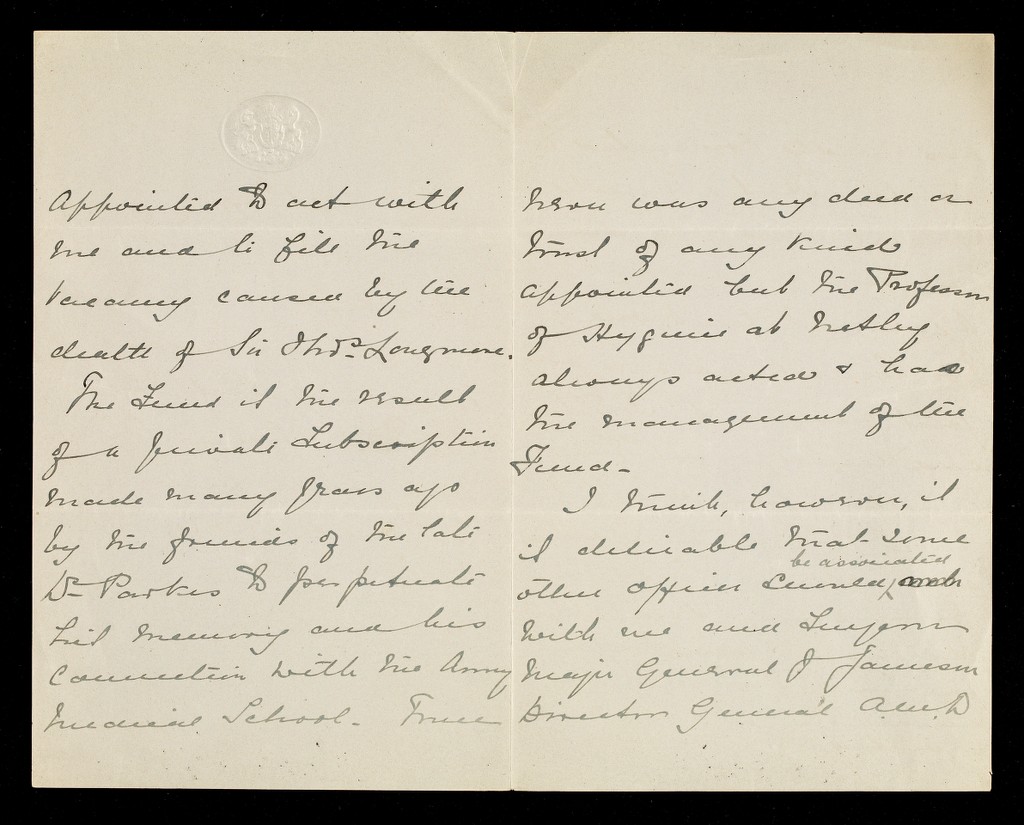 appointed to act with
me and to fill the
vacancy caused by the
death of Sir Thos. Longmore.
The Fund is the result
of a private Subscription
made many years ago
by the friends of the late
Dr Parkes to perpetuate
his memory and his
connection with the Army
Medical School. There
never was any deed or
trust of any kind
appointed but the Professor
of Hygiene at Netley
always acted & had
the management of the
Fund -
I think, however, it
is desirable that some
be associated
other officer should
with me and Surgeon
Major General J Jameson
Director General A.M.D